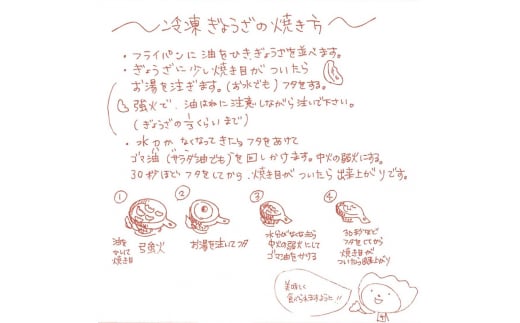 ～冷凍ぎょうざの焼き方～
・フライパンに油をひき、ぎょうざを並べます。
・ぎょうざに少し焼き目がついたら
お湯を注ぎます。(お水でも)フタをする。
強火で、油はねに注意しながら注いで下さい。
(ぎょうざの1/3くらいまで)
・水分がなくなってきたらフタをあけて
ゴマ油(サラダ油でも)を回しかけます。中火の弱火にする。
30秒ほどフタをしてから、焼き目がついたら出来上がりです。
①
油を
焼き目
強火
②
お湯を注いでフタ
③
水分がなくなったら
中火の弱火にして
ゴマ油をかける
④
30秒ほど
フタをしてから
焼き目が
ついたら出来上がり
美味しく
食べられますように!!